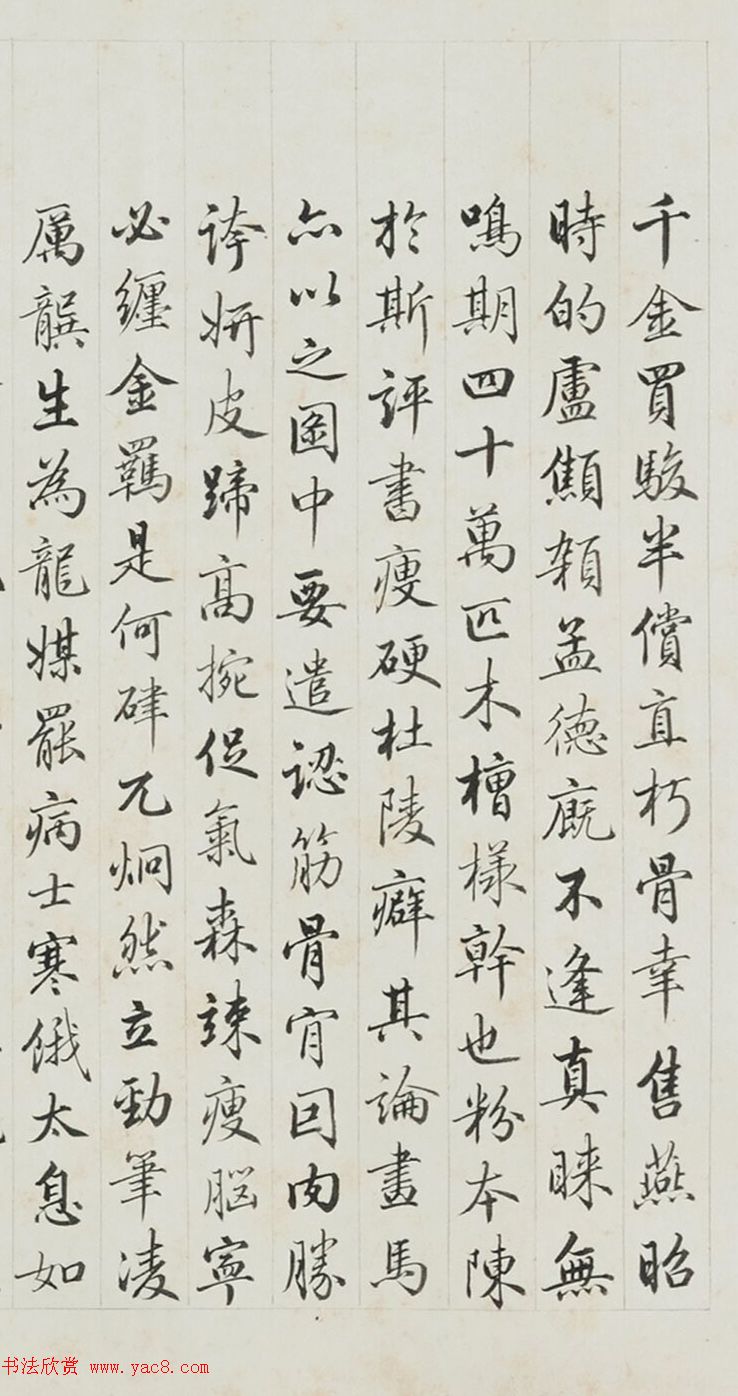 千金買駿半償直朽骨幸售燕昭
時的盧顦顇孟德廐不逢真睞無
鳴期四十萬匹木槽櫪幹也粉本陳
於斯評書瘦硬杜陵癖其論畫馬
亦以之圖中要遣認筋骨肎因肉勝
誇妍皮蹄高捥促氣森竦瘦腦寧
必纏金羈是何硉兀炯然立勁筆凌
厲龔生為龍媒罷病士寒餓太息如
书法欣赏 www.yac8.com